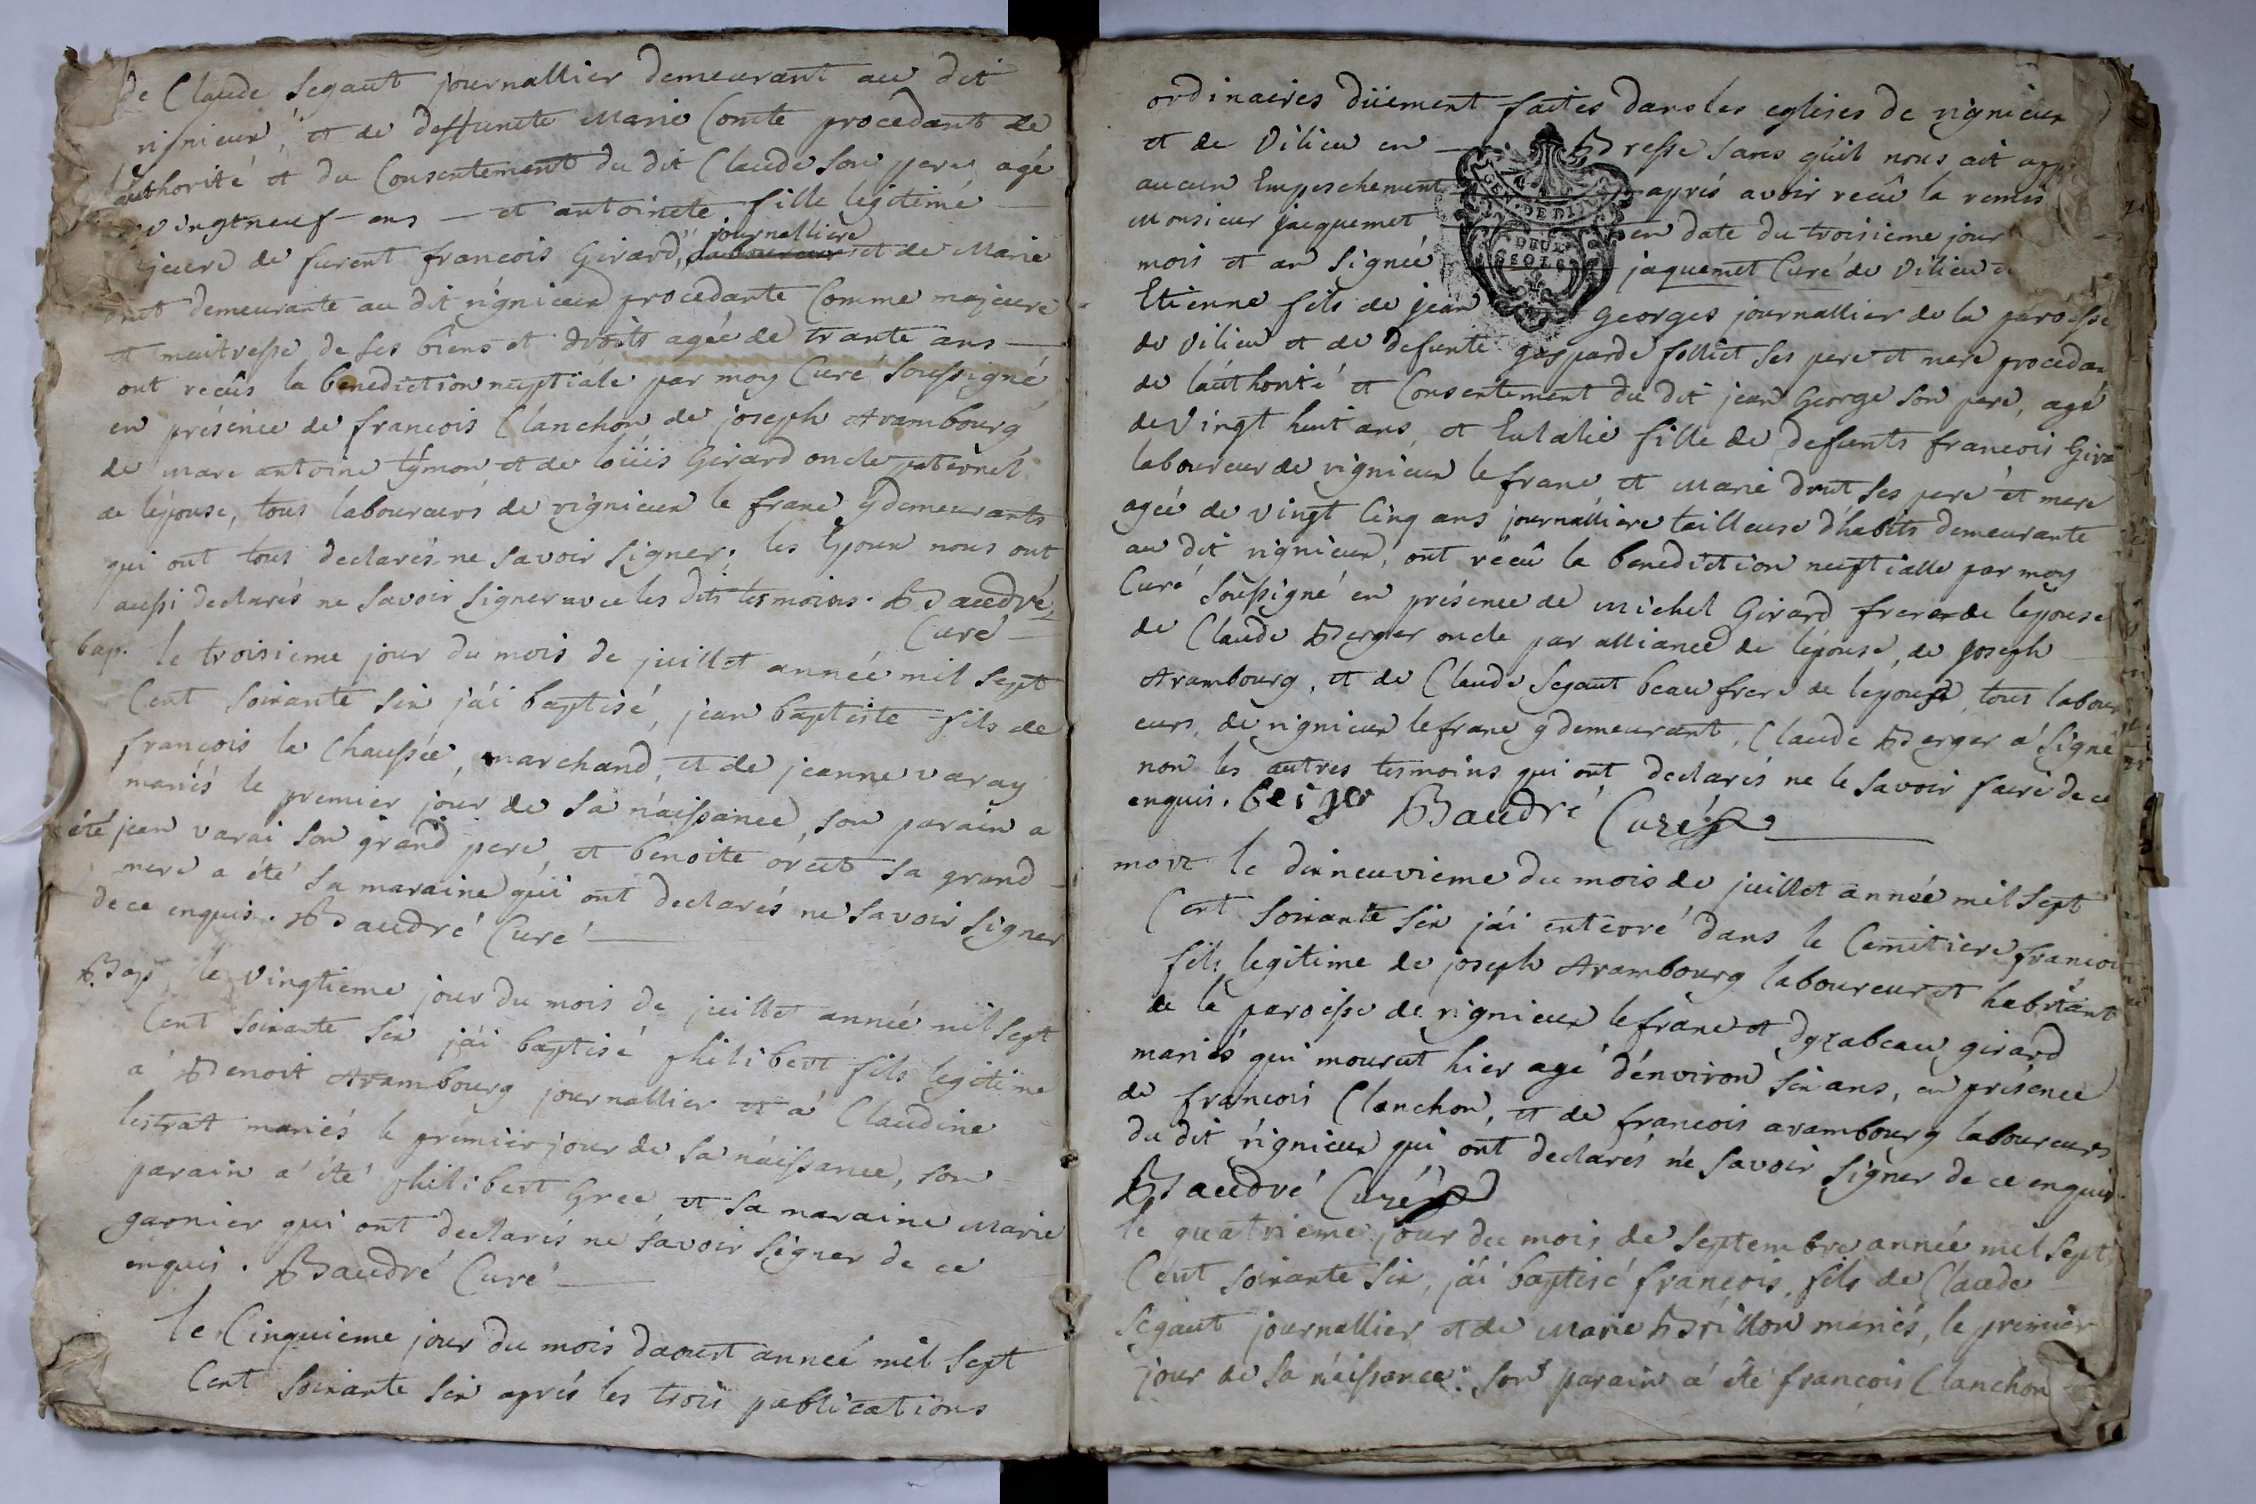 de Claude Segaut journallier demeurant au dit
rignieux, et de deffuncte Marie Comte procedant de
l'authorité et du Consentement du dit Claude son pere agé
vingtneuf ans et antoinete fille legitime
journalliere
jeure de furent francois Girard, laboureur et de Marie
demeurante au dit rignieux procedante Comme majeure
et maitresse de ses biens et droits agée de trante ans
ont recûs la benediction nuptiale par moy Curé soussigné
en présénce de francois Clanchon de joseph Arambourg
de marc antoine tÿmon et de loüis Girard oncle paternel
de lépouse, tous laboureurs de rignieux le franc ÿ demeurants
qui ont tous declarés ne savoir signer. les Epoux nous ont
aussi declarés ne savoir signer avec les dits tésmoins. Baudré
Curé
bap. le troisieme jour du mois de juillet année mil sept
Cent soixante six j'ái baptisé, jean baptiste fils de
françois la Chaussée, marchand, et de jeanne varay
mariés le premier jour de sa náissance, son parain a
été jean varai son grand pere, et benoite sa grand
mere a été sa maraine qúi ont declarés ne savoir signer
de ce enquis. Baudré Curé
Bap. le vingtieme jour du mois de juillet année mil sept
Cent soixante six j'ái baptisé philibert fils legitime
á Benoit Arambourg journallier et á Claudine
lestrat mariés le prémier jour de sa náissance, son
parain á été philibert Gree, et sa maraine Marie
garnier qui ont declarés ne savoir signer de ce
enquis. Baudré Curé
le Cinquieme jour du mois daoust année mil sept
Cent soixante six aprés les trois publications
ordinaires düement faites dans les eglises de rignieux
et de Vilieu en Bresse sans qúil nous ait app
aucun Empeschement aprés avoir recû la remis
Monsieur jacquemet, en date du troisieme jour
GEN. DE DI
DEUX
SOLS
mois et an signée jaquemet Curé de Vilieu
Etienne fils de jean Georges journallier de la paroisse
de vilieu et de defunte gasparde folliet ses pere et mere proceda
de láuthorité et Consentement du dit jean George son pere, agé
de vingt huit ans, et Eulalie fille de defunts francois Gira
laboureur de rignieux le franc et Marie drut ses pere et mere
agée de vingt Cinq ans journalliere tailleuse d'habits demeurante
au dit rignieux, ont récû la benediction nuptialle par moy
Curé soussigné en présence de Michel Girard frere de lépouse
de Claude Berger oncle par alliance de lépouse, de joseph
Arambourg, et de Claude Segaut beau frere de lepouse, tous labour
eurs, de rignieux le franc ÿ demeurant, Claude Berger á signé
non les autres tesmoins qui ont declarés ne le savoir faire de ce
enquis. berger Baudré Curé
mort le dixneuvieme du mois de juillet année mil sept
Cent soixante six j'ái enterré dans le Cemitiere francoi
fils legitime de joseph Arambourg laboureur et habitant
de la paroisse de rignieux le franc et dyzabeau girard
mariés qui mourut hier agé d'énviron six ans, en présence
de francois Clanchon, et de francois arambourg laboureurs
du dit rignieux qui ont declarés ne savoir signer de ce enquis.
Baudré Curé
le quatrieme jour du mois de septembre année mil sept
Cent soixante six, j'ái baptisé françois, fils de Claude
Segaut journallier et de Marie Brillon mariés, le premier
jour de sa náissance. son parain á été françois Clanchon